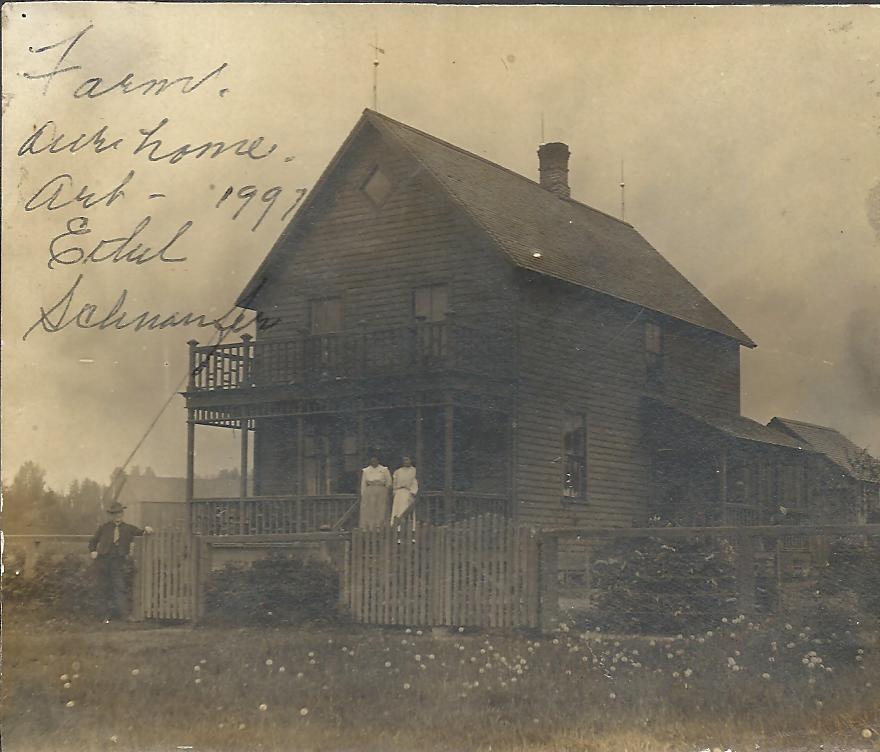 Farm.
Our home.
Art - 1997
Ethel
Schnaufer